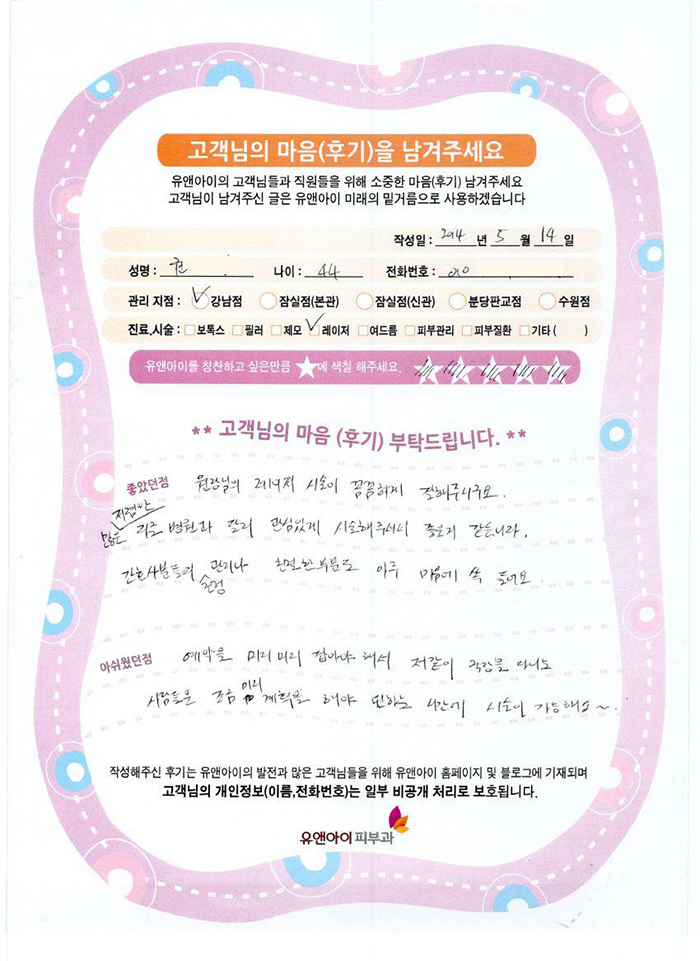 고객님의 마음(후기)을 남겨주세요
유앤아이의 고객님들과 직원들을 위해 소중한 마음(후기) 남겨주세요
고객님이 남겨주신 글은 유앤아이 미래의 밑거름으로 사용하겠습니다
작성일 : 2014 년 5 월 14 일
성명 : 권 나이 : 44 전화번호 : 010
관리 지점 : 강남점 잠실점(본관) 잠실점(신관) 분당판교점 수원점
진료,시술 : 보톡스 필러 제모 레이저 여드름 피부관리 피부질환 기타 ( )
유앤아이를 칭찬하고 싶은만큼 ★에 색칠 해주세요.
** 고객님의 마음 (후기) 부탁드립니다. **
좋았던점 원장님의 레이저 시술이 꼼꼼하게 잘해주시구요.
저렴한
많은 다른 병원과 달리 관심있게 시술해주셔서 좋은거 같습니다.
간호사분들의 관리나 친절한 부분도 아주 마음에 쏙 들어요
아쉬웠던점 예약을 미리미리 잡아야 해서 저같이 직장을 다니는
미리
사람들은 조금 계획을 해야 원하는 시간에 시술이 가능해요~
작성해주신 후기는 유앤아이의 발전과 많은 고객님들을 위해 유앤아이 홈페이지 및 블로그에 기재되며
고객님의 개인정보(이름,전화번호)는 일부 비공개 처리로 보호됩니다.
유앤아이피부과